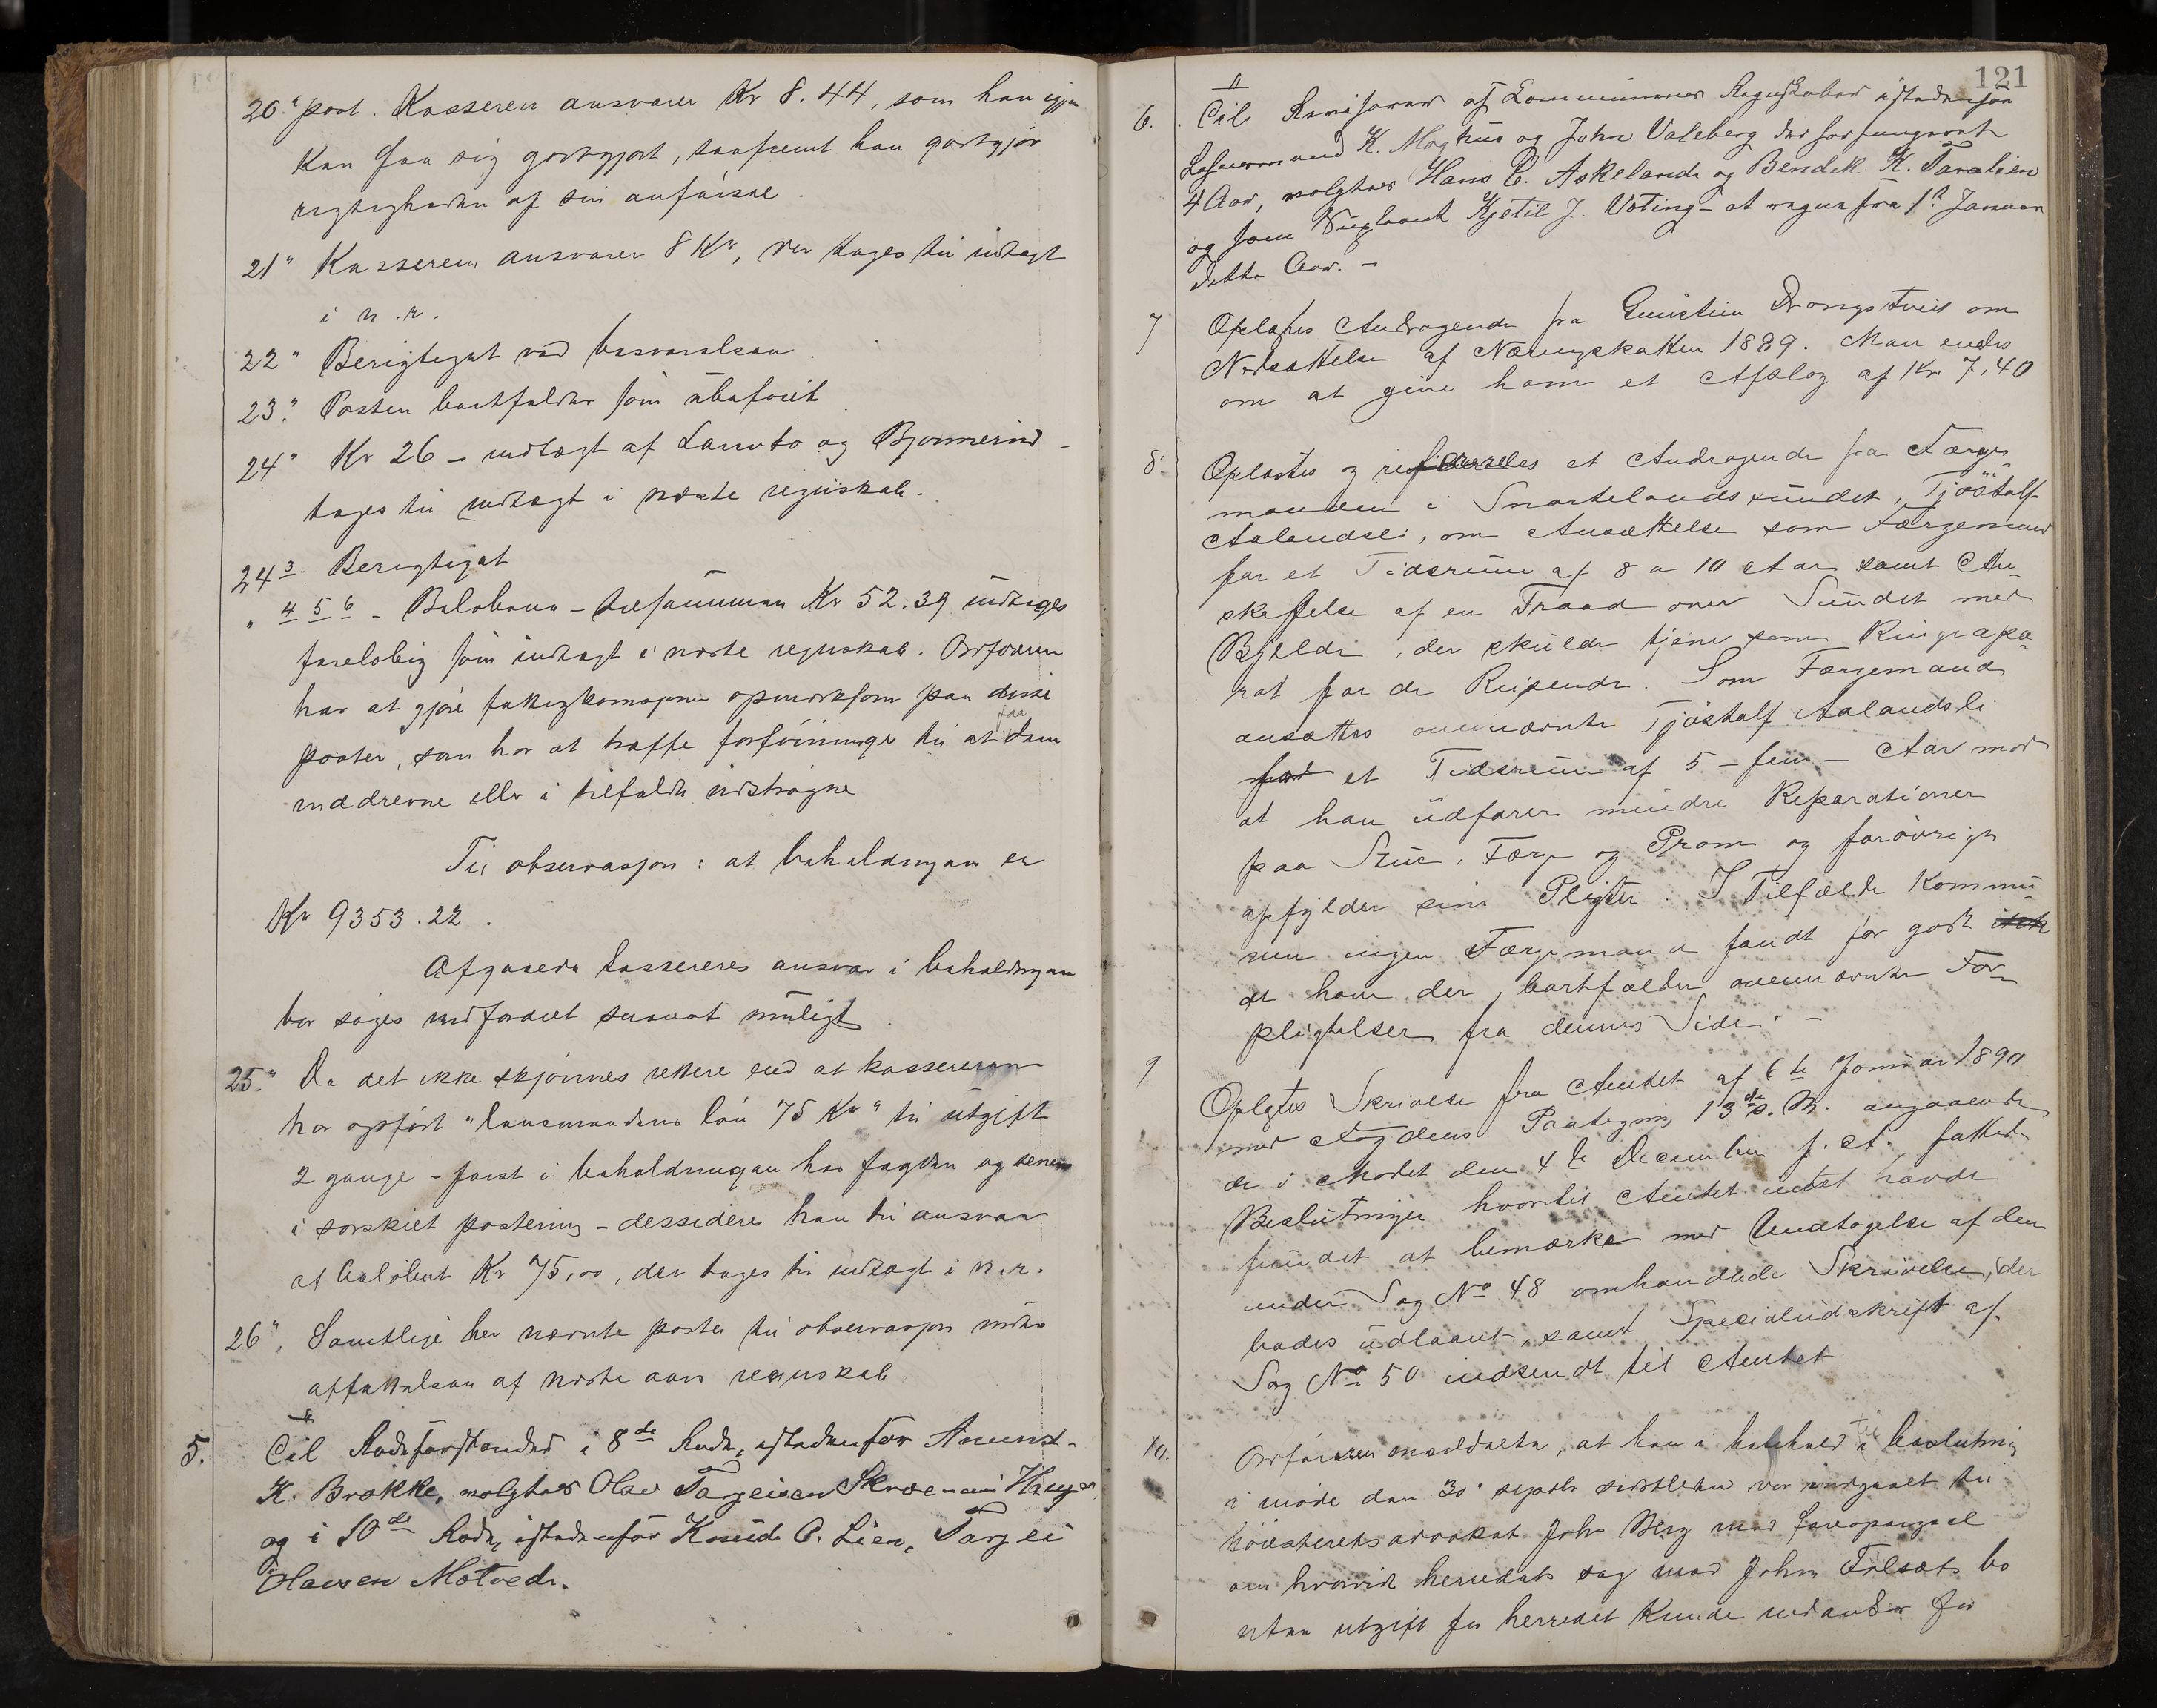 20" post. Kasseren ansvarer Kr 8.44, som han igjen
kan faa sig godtgjort, saafremt han godtgjør
rigtigheden af sin anførsel.
21" Kasseren ansvarer 8 Kr, der tages til indtægt
i n.r.
22" Berigtiget ved besvarelsen.
23" Posten bortfalder som ubeføiet
24" Kr 26 – indtægt af Landbo og Bjonnerind –
tages til indtægt i næste regnskab.
24 3 Berigtiget
" 4 5 6 – Beløbene – tilsammen Kr 52.39 indtages
foreløbig som indtægt i næste regnskab. Ordføreren
har at gjøre fattigkomisjonen opmærksom paa disse
poster, som har at træffe forføininger til at faa dem
inddrevne eller i tilfælde udstrøgne
Til observasjon: at beholdningen er
Kr 9353.22.
Afgaaede kassereres ansvar i beholdningen
bør søges indfordret snarest muligt.
25." Da det ikke skjønnes rettere end at kassereren
har opført "lensmandens løn 75 Kr" til utgift
2 gange – først i beholdningen hos fogden og senere
i særskilt postering – dessideres han til ansvar
at beløbet Kr 75,00, der tages til indtægt i n.r.
26", Samtlige her nævnte poster til observasjon under
affattelsen af næste aars regnskab
5. Til Rodeforstander i 8de Rode, istedenfor Anund
K. Brokke, valgtes Olav Torgeisen Skroe – Haugen
og i 10de Rode, istedenfor Knud O. Lien, Torgei
Olavsen Motvedt.
121
6. Til Revisorer af Kommunens Regnskaber istedenfor
Lensmand K. Maghus og John Valeberg der har fungeret
4 Aar, valgtes Hans C. Askeland og Bendik K. Taralien
og som Suppleant Kjetil J. Uoting – at regne fra 1ste Januar
dette Aar. –
7 Oplæstes Andragende fra Gunstein Drongstveit om
Nedsættelse af Næringskatten 1889. Man enedes
om at give ham et Afslag af Kr. 7,40
8. Oplæstes og refereredes et Andragende fra Færge
manden i Snartelandssundet, Tjøstolf
Aalandsli, om Ansættelse som Færgemand
for et Tidsrum af 8 a 10 Aar samt An
skaffelse af en Traad over Sundet med
Bjelde, der skulde tjene som Ringeapa
rat for de Reisende. Som Færgemand
ansættes ovennævnte Tjøstolf Aalandsli
for et Tidsrum af 5 – fem – Aar mod
at han udfører mindre Reparationer
paa Stue, Færge og Pram og forøvrigt
opfylder sine Pligter. I Tilfælde Kommu
nen ingen Færgemand fandt for godt
at have der, bortfalder ovennævnte For
pligtelser fra dennes Side. –
9 Oplæstes Skrivelse fra Amtet af 6te Januar 1890
med Fogdens Paategn. 13de s. M. angaaende
de i Mødet den 4de December f. A. fattede
Beslutninger hvortil Amtet intet havde
fundet at bemærke med Undtagelse af den
under Sag No 48 omhandlede Skrivelse, der
bedes udlaant, samt Specialudskrift af
Sag No 50 indsendt til Amtet
10. Ordføreren meddelte, at han i henhold til beslutning
i møde den 30 septbr sidstleden var indgaaet til
høiesteretsadvokat Johs Berg med forespørgsel
om hvorvidt herredets sag mod John Tilsets bo
uten utgift for herredet kunde indankes for